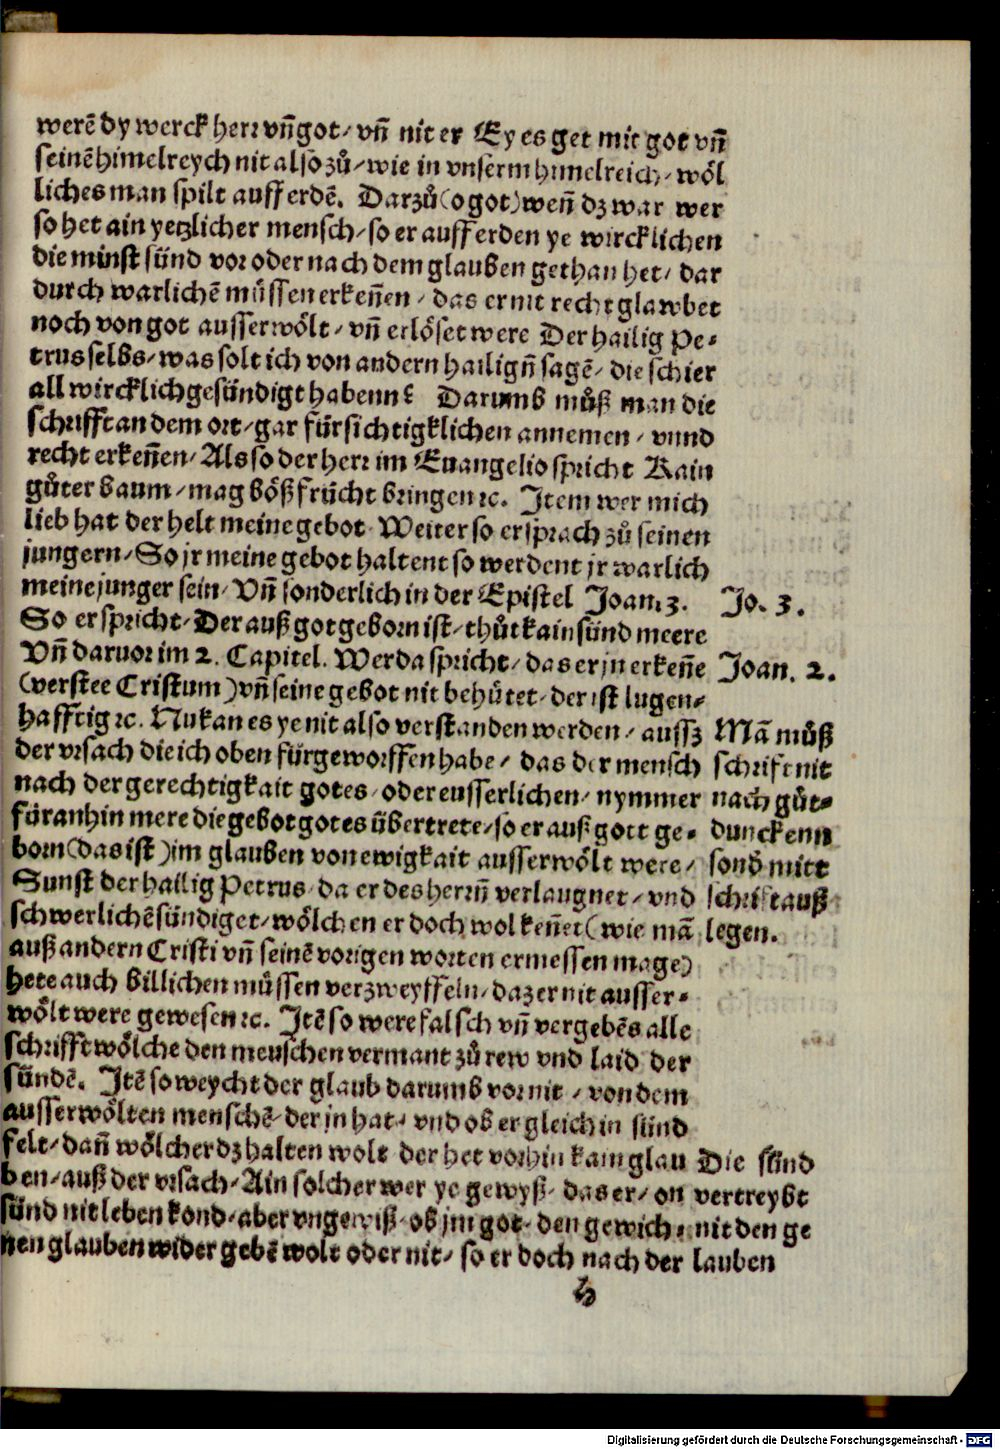 werẽ dy werck herr vñ got / vñ nit er Ey es get mit got vñ
seinẽ himelreych nit also zů / wie in vnserm himelreich / wöl
liches man spilt auff erdẽ. Darzů (o got) weñ dz war wer
so het ain yetzlicher mensch / so er auff erden ye wircklichen
die minst sünd vor oder nach dem glauben gethan het / dar
durch warlichẽ müssen erkeñen / das er nit recht glawbet
noch von got ausserwölt / vñ erlöset were Der hailig Pe-
trus selbs / was solt ich von andern hailigñ sagẽ / die schier
all wircklich gesündigt habenn? Darumb můß man die
schrifft an dem ort / gar fürsichtigklichen annemen / vnnd
recht erkeñen / Als so der herr im Euangelio spricht Kain
gůter baum / mag böß frücht bringen ꝛc. Item wer mich
lieb hat der helt meine gebot Weiter so er sprach zů seinen
jungern / So jr meine gebot haltent so werdent jr warlich
meine junger sein / Vñ sonderlich in der Epistel Joan. 3.
Jo. 3.
So er spricht / Der auß got geborn ist / thůt kain sünd meere
Vñ daruor im 2. Capitel. Wer da spricht / das er jn erkeñe
Joan. 2.
(verstee Cristum) vñ seine gebot nit behütet / der ist lugen-
hafftig ꝛc. Nu kan es ye nit also verstanden werden / aussz
der vrsach die ich oben fürgeworffen habe / das der mensch
nach der gerechtigkait gotes / oder eusserlichen / nymmer
füranhin mere die gebot gotes übertrete / so er auß gott ge-
born (das ist) im glauben von ewigkait ausserwölt were /
Sunst der hailig Petrus / da er des herrñ verlaugnet / vnd
schwerlichẽ sündiget / wölchen er doch wol keñet (wie mã
Mã můß
schrift nit
nach gůt-
dunckenn
sonď mitt
schrift auß
legen.
auß andern Cristi vñ seinẽ vorigen worten ermessen mage)
hete auch billichen müssen verzweyffeln / daz er nit ausser-
wölt were gewesen ꝛc. Itẽ so were falsch vñ vergebẽs alle
schrifft wölche den menschen vermant zů rew vnd laid der
sündẽ. Itẽ so weycht der glaub darumb vor nit / von dem
ausserwölten menschẽ / der jn hat / vnd ob er gleich in sünd
felt / dañ wölcher dz halten wolt der het vorhin kain glau
ben / auß der vrsach / Ain solcher wer ye gewyß / das er / on
sünd nit leben kond / aber vngewiß / ob jm got / den gewich-
nen glauben wider gebẽ wolt oder nit / so er doch nach der
Die sünd
vertreybt
nit den ge
lauben
h
Digitalisierung gefördert durch die Deutsche Forschungsgemeinschaft - DFG